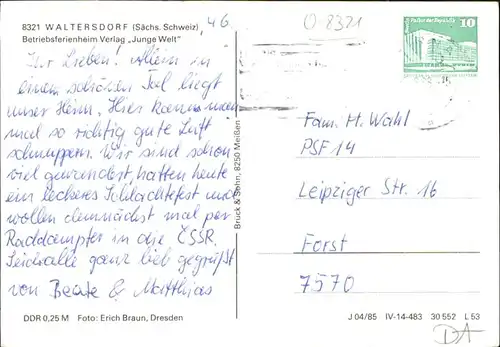 8321 WALTERSDORF (Sächs. Schweiz)
Betriebsferienheim Verlag „Junge Welt"
46
O-8321
Palast der Republik 10
DDR
Ihr Lieben! Allein in
einem schönen Tal liegt
unser Heim. Hier kann man
mal so richtig gute Luft
schnuppern. Wir sind schon
viel gewandert, hatten heute
ein leckeres Schlachtefest und
wollen demnächst mal per
Raddampfer in die ČSSR.
Seid alle ganz lieb gegrüßt
von Beate & Matthias
Bruck & Sohn, 8250 Meißen
Fam. M. Wahl
PSF 14
Leipziger Str. 16
Forst
7570
DDR 0,25 M Foto: Erich Braun, Dresden
J 04/85 IV-14-483 30 552 L 53
DA